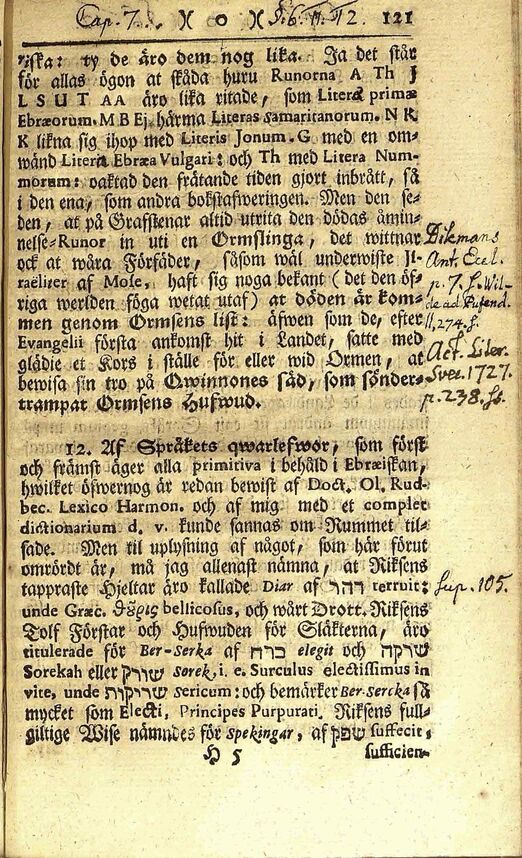 Cap. 7. )( o )( §. 6. 11. 12. 121
riska: ty de äro dem nog lika. Ja det står
för allas ögon at skåda huru Runorna A Th J
L S U T AA äro lika ritade, som Literæ primæ
Ebræorum. M B Ej härma Literas samaritanorum. N R
K likna sig ihop med Literis Jonum. G med en om-
wänd Litera Ebræa Vulgari: och Th med Litera Num-
morum: oaktad den frätande tiden gjort inbrått, så
i den ena, som andra bokstafweringen. Men den se-
den, at på Grafstenar altid utrita den dödas åmin-
nelse-Runor in uti en Ormslinga, det wittnar
ock at wåra Förfäder, såsom wäl underwiste Js-
raeliter af Mose, haft sig noga bekant (det den öf-
riga werlden föga wetat utaf) at döden är kom-
men genom Ormsens list: äfwen som de, efter
Evangelii första ankomst hit i Landet, satte med
glädie et Kors i ställe för eller wid Ormen, at
bewisa sin tro på Qwinnones säd, som sönder-
trampat Ormsens Hufwud.
Dikmans
Ant. Eccl.
p. 7. §.
274. §.
Act. Liter.
Svec. 1727.
p. 238. §§.
12. Af Språkets qwarlefwor, som först
och främst äger alla primitiva i behåld i Ebræiskan,
hwilket öfwernog är redan bewist af Doct. Ol. Rud-
bec. Lexico Harmon. och af mig med et complet
dictionarium d. v. kunde sannas om Rummet til-
sade. Men til uplysning af något, som här förut
omrördt är, må jag allenast nämna, at Riksens
tappraste Hjeltar äro kallade Diar af דהר terruit:
unde Græc. bellicosus, och wårt Drott. Riksens
Tolf Förstar och Hufwuden för Släkterna, äro
titulerade för Ber-Serka af ברה elegit och שרקה
Sorekah eller שורק sorek, i. e. Surculus electissimus in
vite, unde שריקות sericum: och bemärker Ber-Sercka så
mycket som Electi, Principes Purpurati. Riksens full-
giltige Wise nämndes för Spekingar, af שפק suffecit,
Sup. 105.
H 5 sufficien-